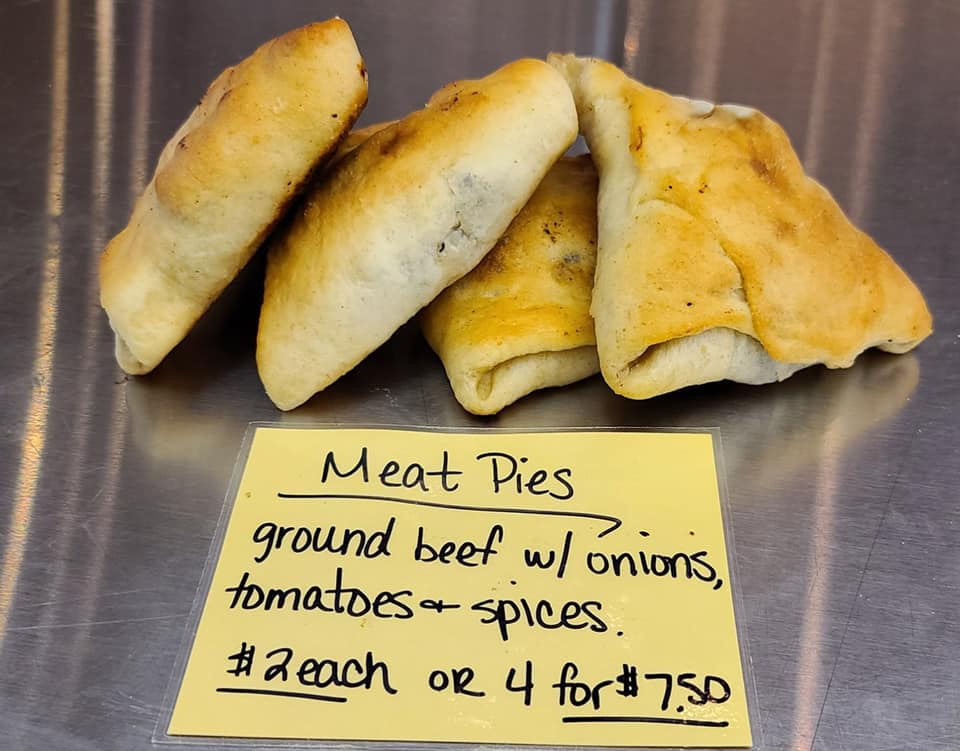 Meat Pies
ground beef w/ onions,
tomatoes & spices.
$2 each OR 4 for $7.50